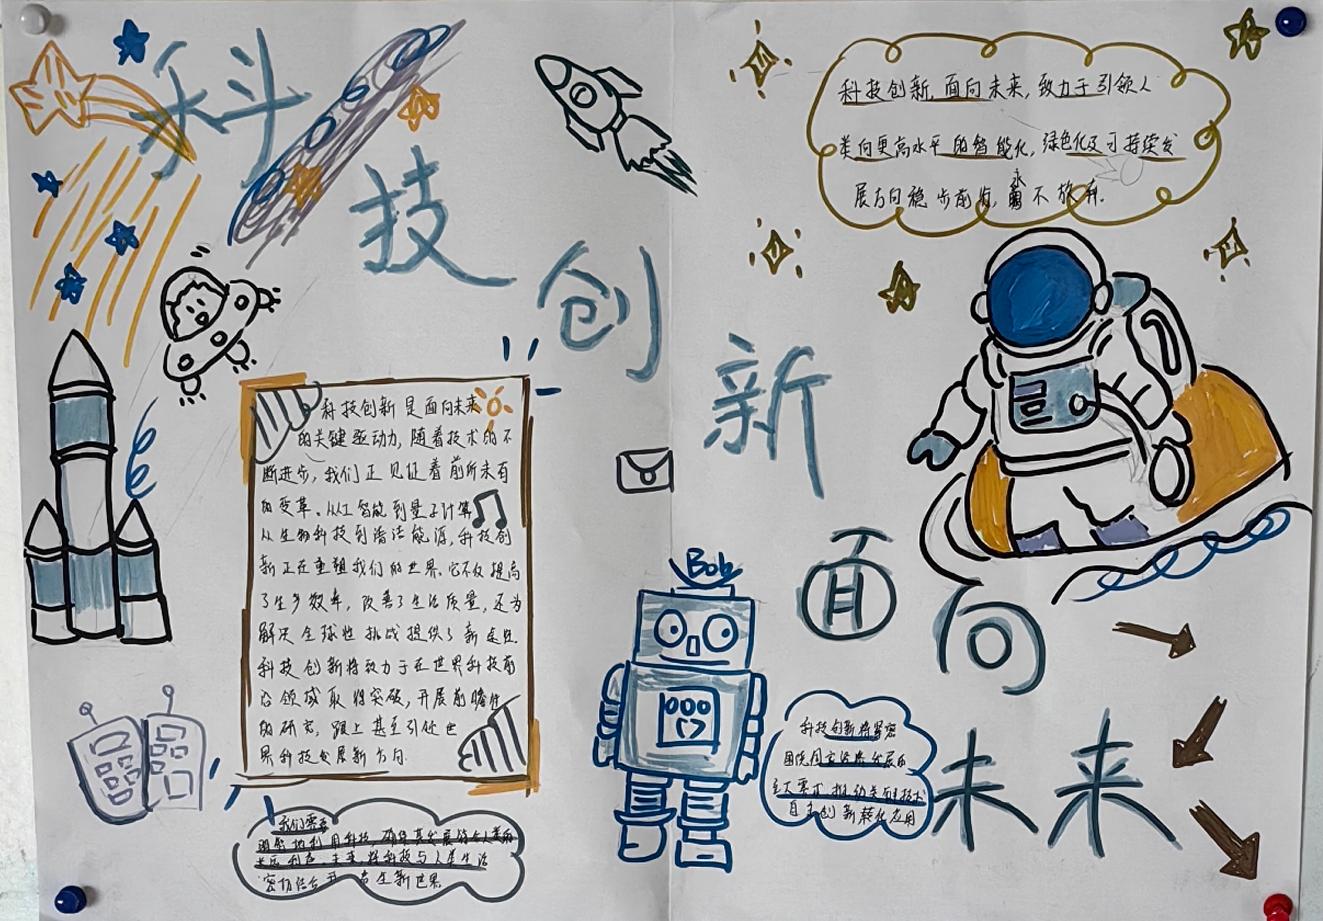 科技创新
面向未来
科技创新,面向未来,致力于引领人
类向更高水平的智能化,绿色化及可持续发
展方向稳步前进,永不放弃.
科技创新是面向未来
的关键驱动力,随着技术的不
断进步,我们正见证着前所未有
的变革。从人工智能到量子计算
从生物科技到清洁能源,科技创
新正在重塑我们的世界.它不仅提高
了生产效率,改善了生活质量,还为
解决全球性挑战提供了新
科技创新将致力于在世界科技前
沿领域取得突破,开展前瞻性
的研究,跟上甚至引领世
界科技发展新方向.
Bob
科技创新将紧密
围绕国家经济发展的
重大需求,推动关键技术
自主创新转化应用
我们需要
利用科技,确保其发展符合人类的
长远利益.未来,将科技与人类生活
密切结合 新世界